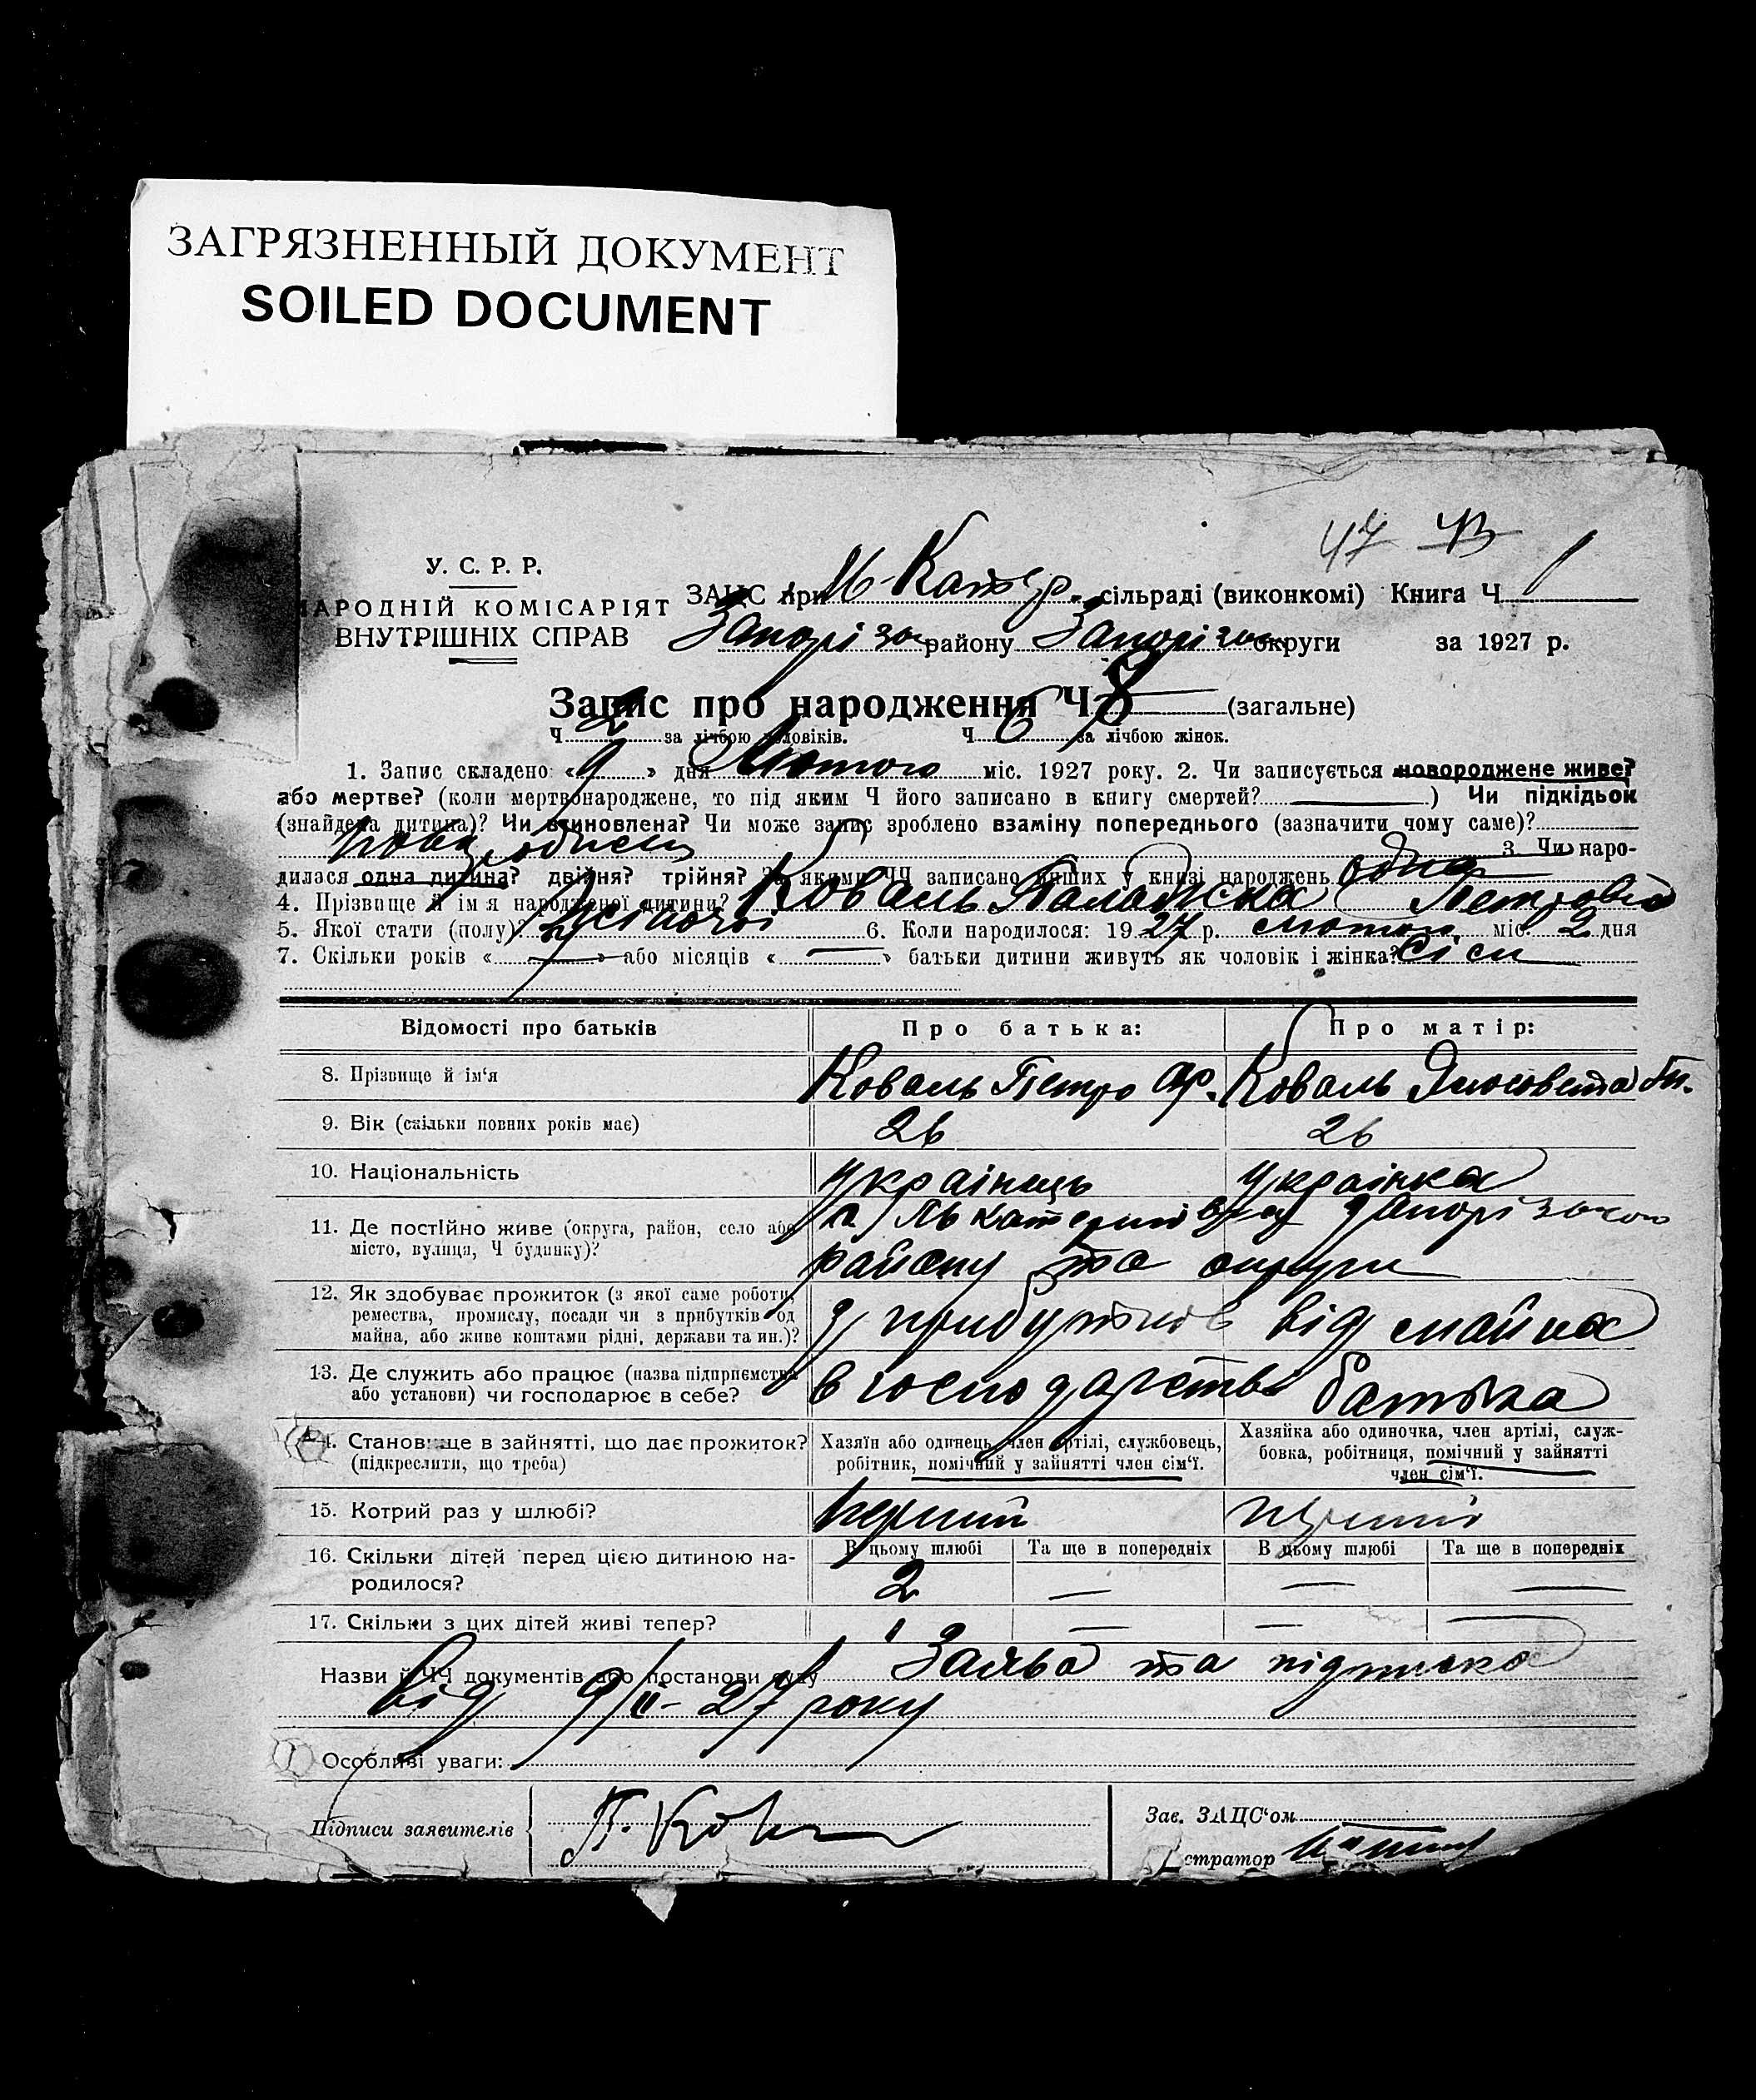 ЗАГРЯЗНЕННЫЙ ДОКУМЕНТ
SOILED DOCUMENT
47 43
У. С. Р. Р.
НАРОДНІЙ КОМІСАРІЯТ
ВНУТРІШНІХ СПРАВ
ЗАЦС при М-Катер. сільраді (виконкомі) Книга Ч 1
Запорізьк району Запорізьк округи за 1927 р.
Запис про народження Ч 8 (загальне)
Ч 2 за лічбою чоловіків. Ч 6 за лічбою жінок.
1. Запис складено: «9» дня Лютого міс. 1927 року. 2. Чи записується новороджене живе?
або мертве? (коли мертвонароджене, то під яким Ч його записано в книгу смертей? —) Чи підкідьок
(знайдена дитина)? Чи втиновлена? Чи може запис зроблено взаміну попереднього (зазначити чому саме)?
3. Чи наро-
дилася одна дитина? двійня? трійня? За якими ЧЧ записано инших у книзі народжень одна
4. Прізвище й ім'я народженої дитини? Коваль Палажка Петровна
5. Якої стати (полу) Жіночої 6. Коли народилося: 1927 р. лютого міс. 2 дня
7. Скільки років «—» або місяців «—» батьки дитини живуть як чоловік і жінка?
Відомості про батьків Про батька: Про матір:
8. Прізвище й ім'я Коваль Петро Коваль
9. Вік (скільки повних років має) 26 26
10. Національність українець українка
11. Де постійно живе (округа, район, село або місто, вулиця, Ч будинку)? Запорізького
району та округи
12. Як здобуває прожиток (з якої саме роботи, ремества, промислу, посади чи з прибутків од майна, або живе коштами рідні, держави та ин.)? З прибутків від майна
13. Де служить або працює (назва підприємства або установи) чи господарює в себе? в господарстві батька
14. Становище в зайнятті, що дає прожиток? (підкреслити, що треба) Хазяїн або одинець, член артілі, службовець, робітник, помічний у зайнятті член сім'ї. Хазяйка або одиночка, член артілі, служ-бовка, робітниця, помічний у зайнятті член сім'ї.
15. Котрий раз у шлюбі? перший перший
16. Скільки дітей перед цією дитиною на-родилося? В цьому шлюбі Та ще в попередніх В цьому шлюбі Та ще в попередніх
2 — — —
17. Скільки з цих дітей живі тепер? 1 — — —
Назви й ЧЧ документів або постанови суду Заява та підписка
від 9/II-27 року
Особливі уваги:
Підписи заявителів П. Кова
Зав. ЗАЦС'ом
стратор